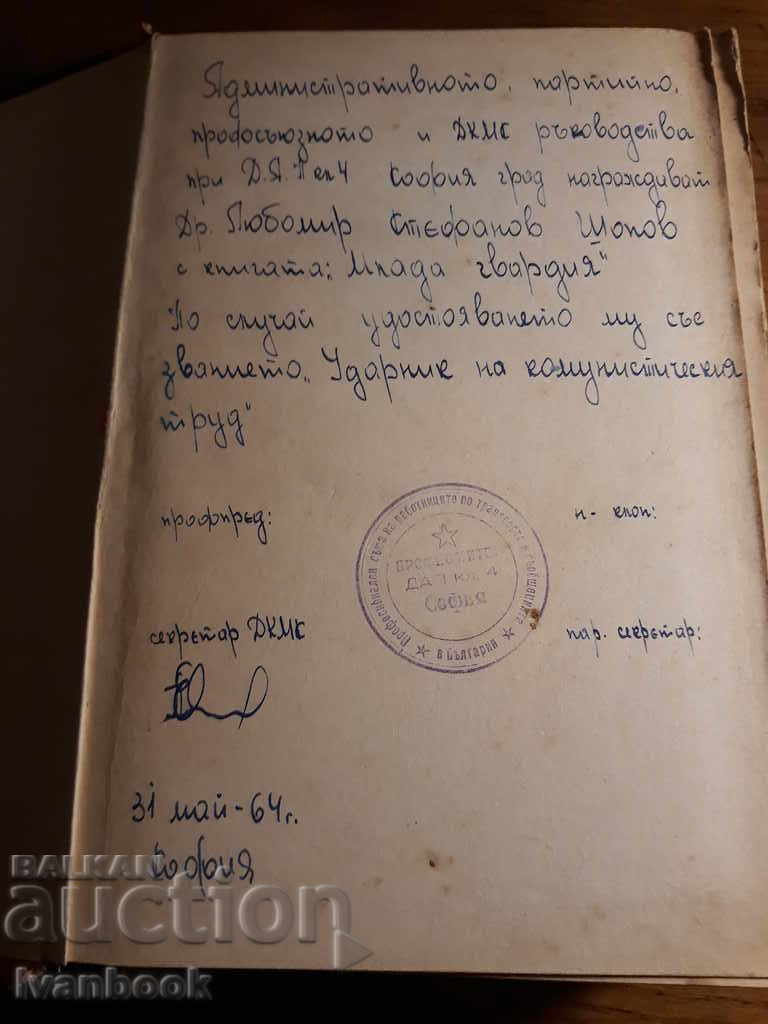 Административното, партийно,
профсъюзното и ДКМС ръководства
при Д.А.П кл 4 София град награждават
Др. Любомир Стефанов Шопов
с книгата: "Млада гвардия"
По случай удостояването му със
званието „Ударник на комунистическия
труд"
профпред:
н-к клон:
Професионален съюз на работниците по транспорта и съобщенията
в България
ПРОФКОМИТЕТ
ДАП КЛ. 4
София
секретар ДКМС
пар. секретар:
31 май - 64 г.
София
BALKAN
auction
Ivanbook